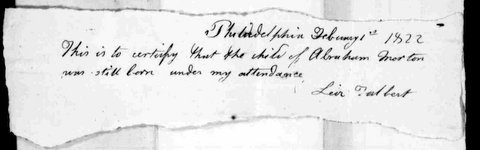 Philadelphia Febuary 1st 1822
This is to certify that the child of Abraham Morton
was still born under my attendance
Levi Tulbert